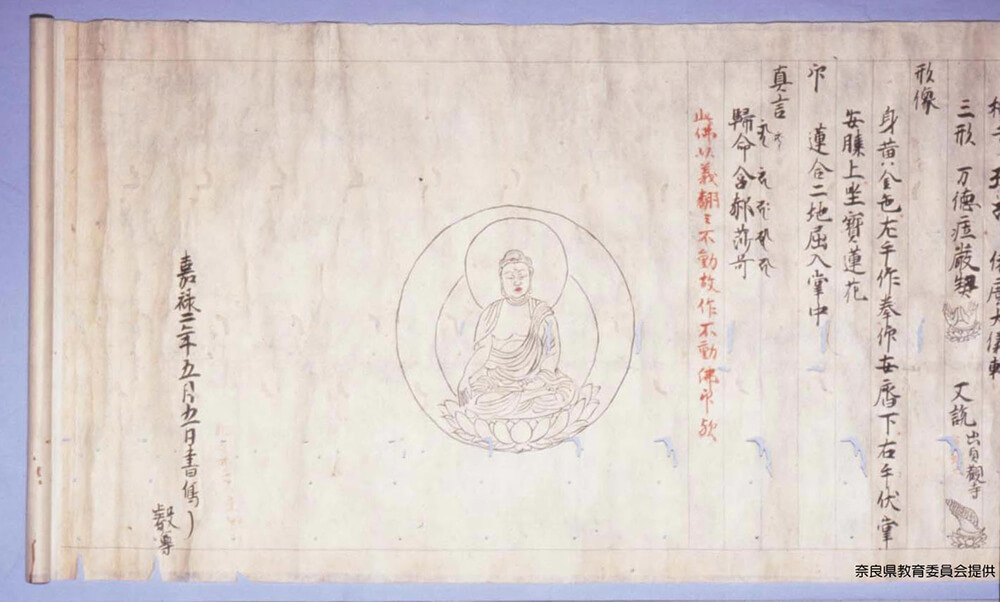 三形 万徳荘厳契 又説 出貞観寺
形像
身黄金色左手作奉作安臍下右手伏掌
安膝上坐寶蓮花
印 蓮合二地屈入掌中
真言
歸命
此佛以義翻之不動故作不動佛印歟
嘉禄二年五月五日書寫
奈良県教育委員会提供